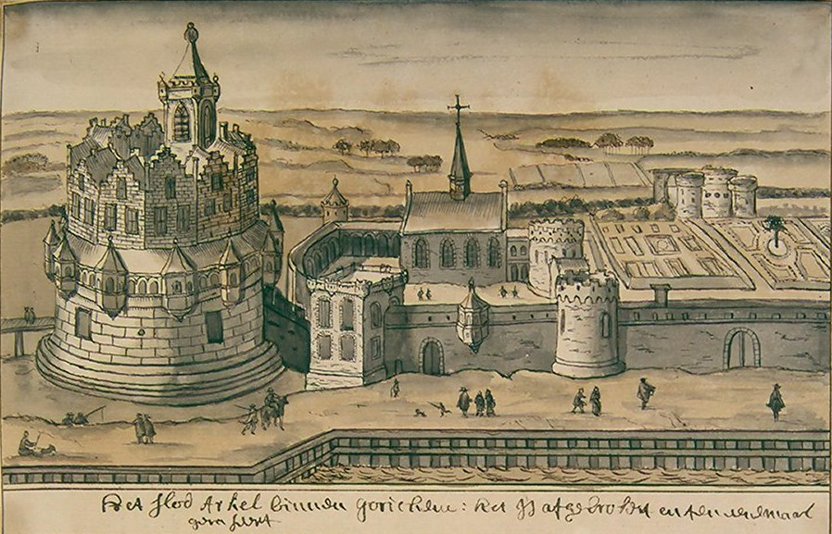 Het slod Arkel binnen gorichem: Het is afgebroken en ten eenemaal